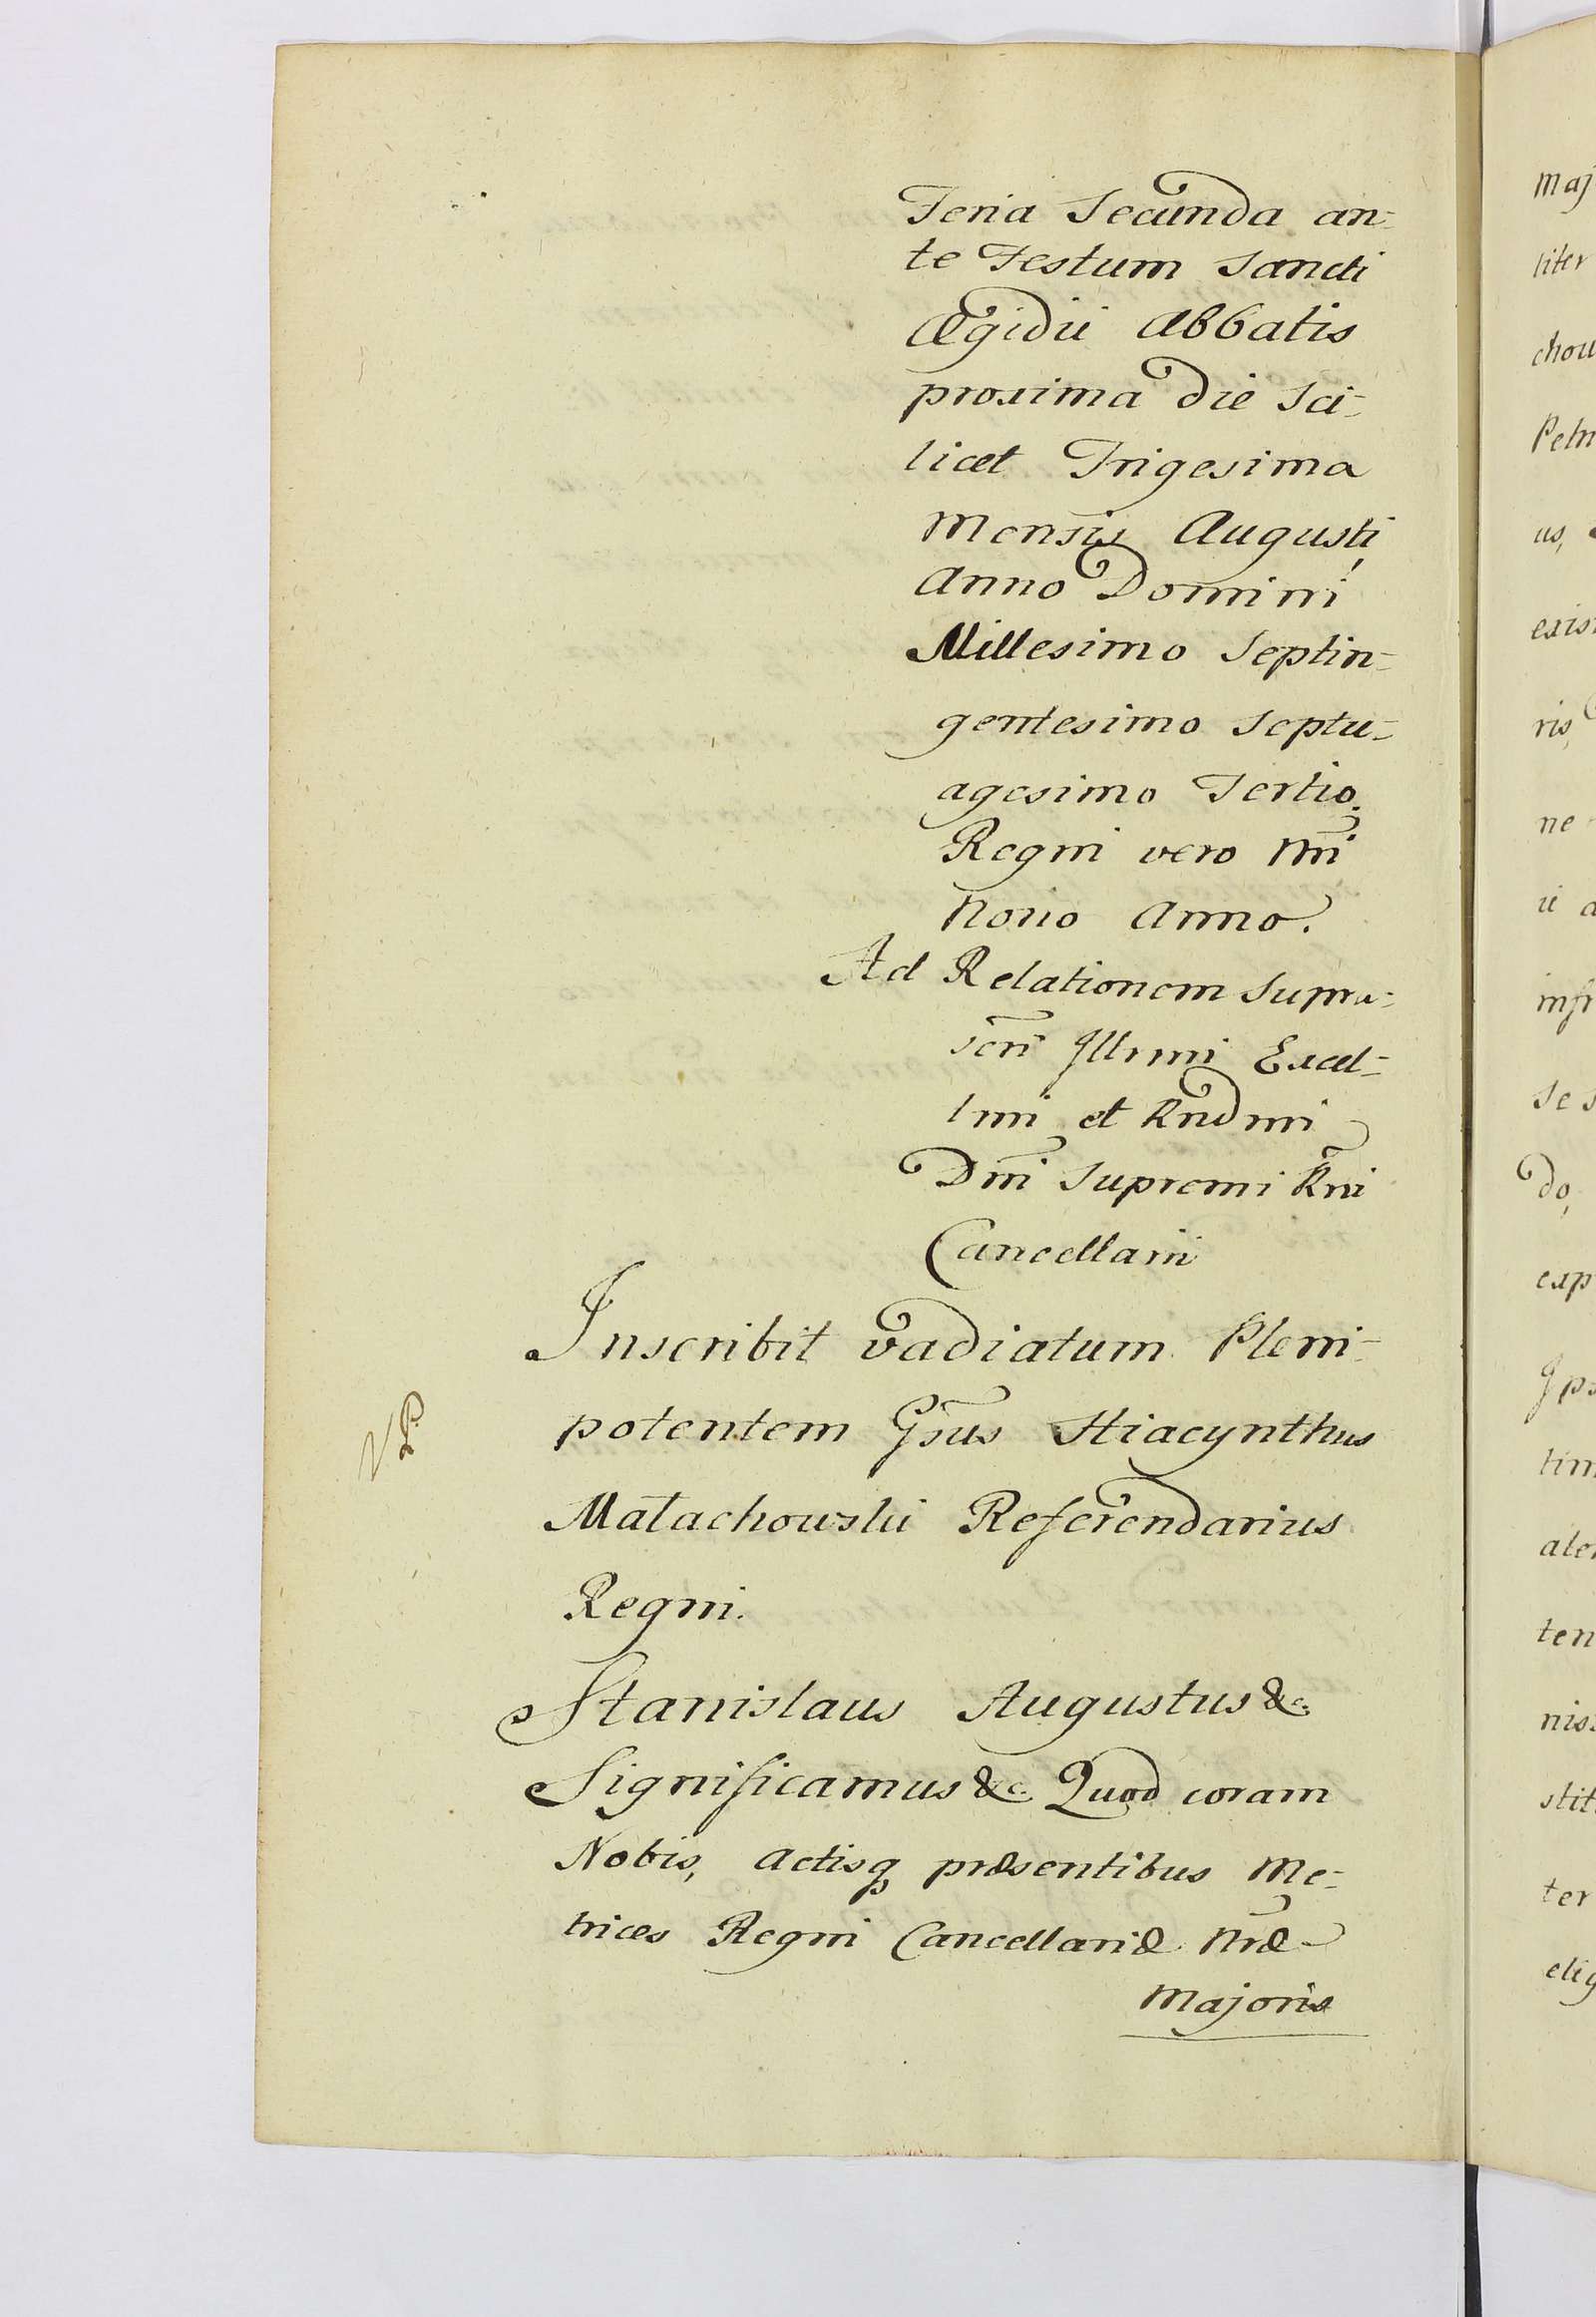 Feria Secunda an-
te Festum Sancti
Ægidii Abbatis
proxima Die Sci-
licet Trigesima
Mensis Augusti,
Anno Domini
Millesimo Septin-
gentesimo Septu-
agesimo Tertio.
Regni vero Nrri
Nono Anno.
Ad Relationem Supra-
scri Illrmi Excel-
lmi et Rndmi
Dni Supremi Rni
Cancellarii
Inscribit vadiatum Pleni-
potentem Gsus Hiacynthus
Małachowski Referendarius
Regni.
VP
Stanislaus Augustus &c.
Significamus &c. Quod coram
Nobis, Actisq præsentibus Me-
trices Regni Cancellariæ Nræ
Majoris
maj
liter
chow
Petri
us,
exis
ris,
ne
ii a
infr
se s
do,
exp
Ips
tim
ten
nis
stit
ter
elig